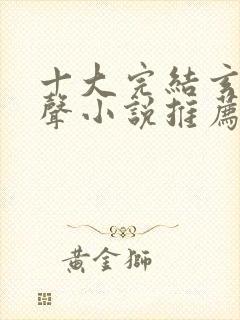 十大完結玄
聲小說推薦
黃金獅